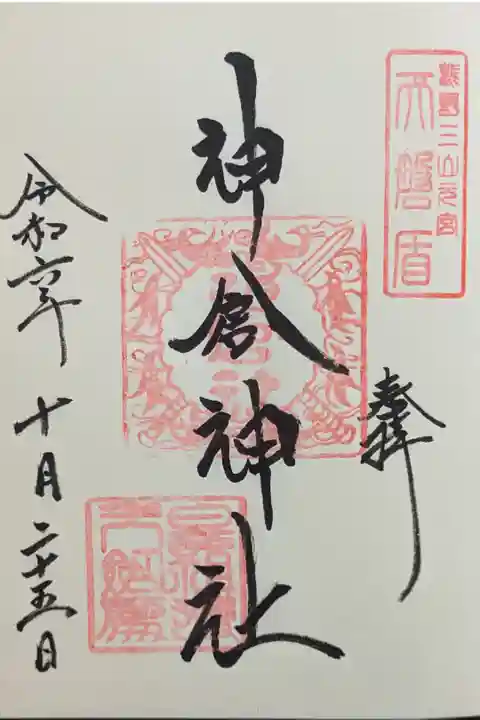 熊野三山元宮
天磐盾
奉拝
神倉神社
令和六年 十月 二十五日